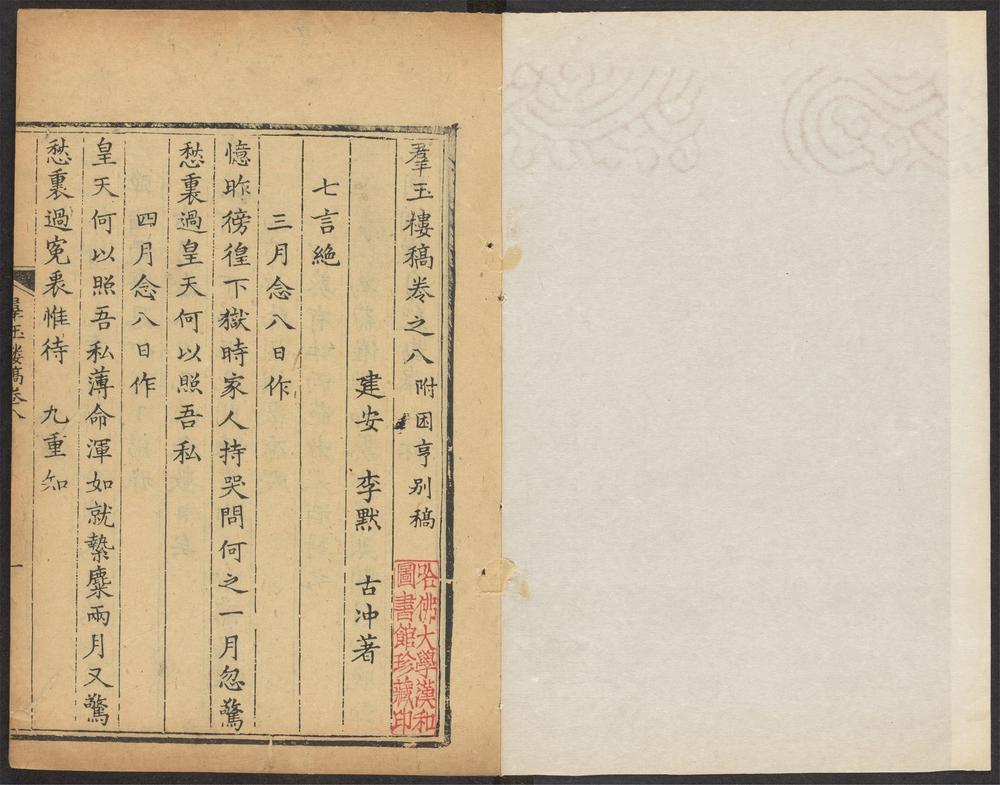 羣玉樓稿卷之八 附困亨别稿
建安 李默 古冲著
七言絶
三月念八日作
憶昨徬徨下獄時家人持哭問何之一月忽驚
愁裏過皇天何以照吾私
四月念八日作
皇天何以照吾私薄命渾如就縶麋兩月又驚
愁裏過寃裏惟待 九重知
羣玉樓稿卷八
一
哈佛大學漢和
圖書館珍藏印